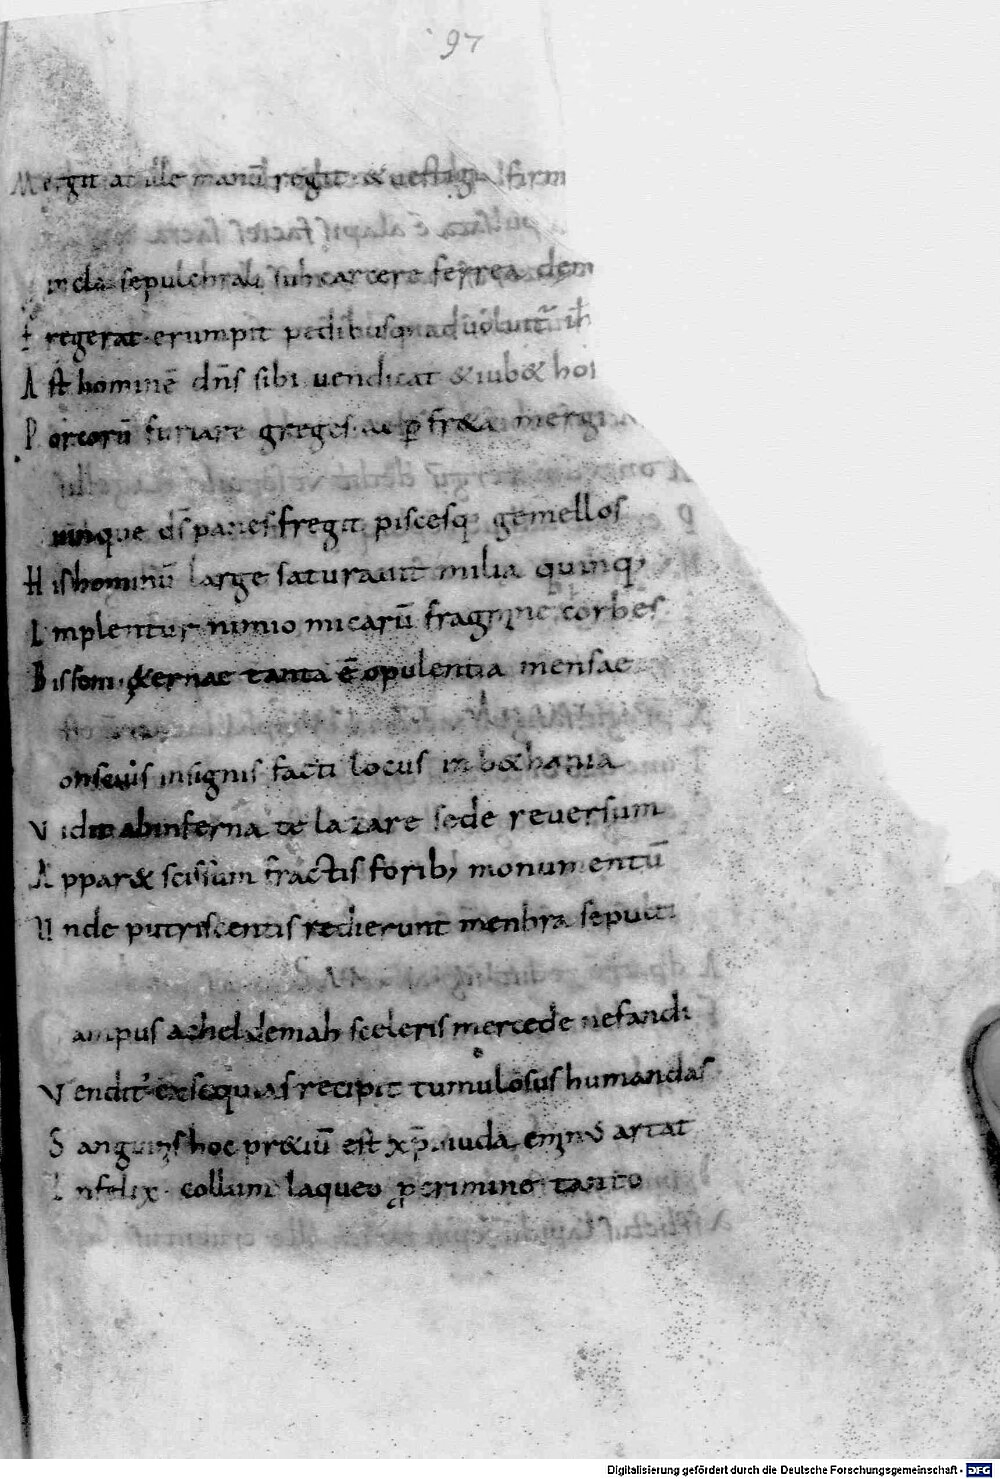 97
Mergit at ille manū regit & uestigia firm
incla sepulchrali sub carcere ferrea dem
F regerat erumpit pedibusq; aduoluit ih
A st hominē dn̄s sibi uendicat & iub& hos
P orcorū furiare greges ac p fr&a mergi
uinque ds panes fregit piscesq; gemellos
H is hominū large saturauit milia quinq;
I mplentur nimio micarū fragmine corbes
B issem &ernae tanta ē opulentia mensae
onscius insignis facti locus in b&hania
V idit ab inferna te lazare sede reuersum
A ppar& scissum fractis forib; monumentū
U nde putriscentis redierunt menbra sepulti
ampus acheldemah sceleris mercede nefandi
V endit exsequias recipit tumulosus humandas
S anguinis hoc pr&iū est xp̄i iuda eminus artat
I nfelix collum laqueo p crimine tanto
Digitalisierung gefördert durch die Deutsche Forschungsgemeinschaft - DFG